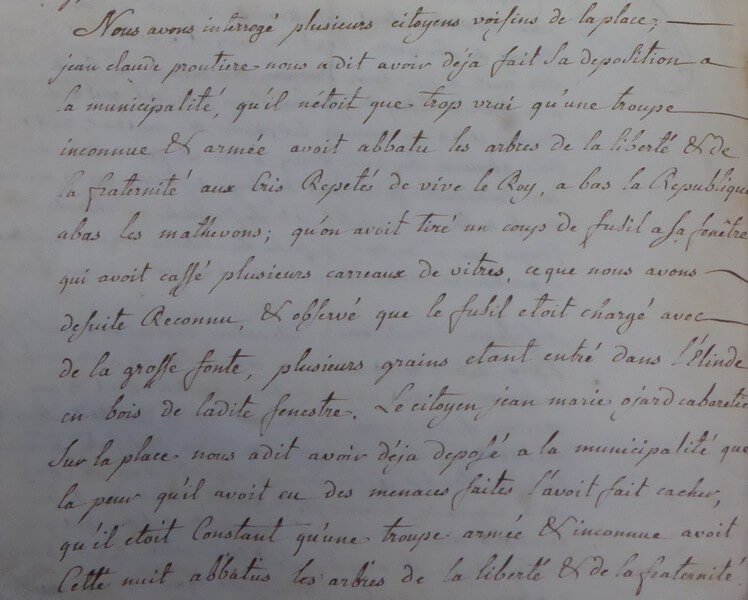 Nous avons interrogé plusieurs citoyens voisins de la place;
jean claude proutiere nous a dit avoir déja fait sa deposition a
la municipalité, qu'il n'étoit que trop vrai qu'une troupe
inconnue & armée avoit abbatu les arbres de la liberté & de
la fraternité aux Cris Repetés de vive le Roy, a bas la Republique
abas les mathevons; qu'on avoit tiré un coup de fusil a sa fenêtre
qui avoit cassé plusieurs carreaux de vitres, ce que nous avons
desuite Reconnu, & observé que le fusil etoit chargé avec
de la grosse fonte, plusieurs grains etant entré dans l'Élinde
en bois de ladite fenestre. Le citoyen jean marie ojard cabaretie
sur la place nous a dit avoir déja deposé a la municipalité que
la peur qu'il avoit eu des menaces faites l'avoit fait cacher,
qu'il etoit Constant qu'une troupe armée & inconnue avoit
Cette nuit abbatus les arbres de la liberté & de la fraternité.